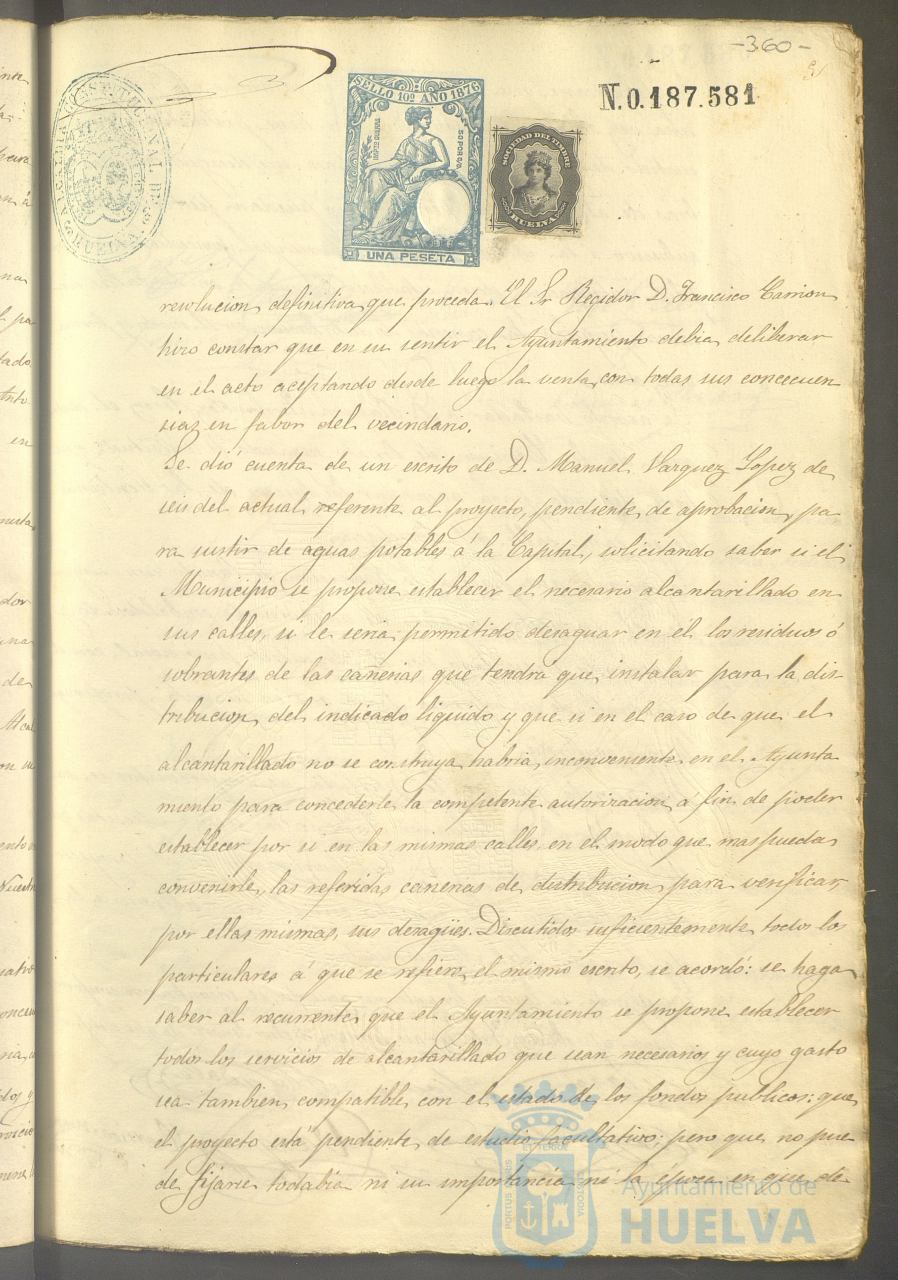 -360-
N.0.187.581
SELLO 10º AÑO 1878
50 POR 0/0
UNA PESETA
SOCIEDAD DEL TIMBRE
HUELVA
CONSTITUCIONAL DE
HUELVA
resolucion definitiva que proceda. El Sr Regidor D. Francisco Carrion
hizo constar que en su sentir el Ayuntamiento debia deliberar
en el acto aceptando desde luego la venta con todas sus concecuen
sias en fabor del vecindario.
Se dió cuenta de un escrito de D. Manuel Vazquez Lopez de
seis del actual referente al proyecto, pendiente de aprobacion, pa
ra surtir de aguas potables á la Capital, solicitando saber si el
Municipio se propone establecer el necesario alcantarillado en
sus calles, si le seria permitido desaguar en él los residuos ó
sobrantes de las cañerias que tendrá que instalar para la dis
tribucion del indicado liquido y que si en el caso de que el
alcantarillado no se construya habria inconveniente en el Ayunta
miento para concederle la competente autorizacion á fin de poder
establecer por si en las mismas calles, en el modo que mas pueda
convenirle, las referidas cañerias de distribucion para verificar,
por ellas mismas, sus desagües. Discutidos suficientemente todos los
particulares á que se refiere el mismo escrito, se acordó: se haga
saber al recurrente que el Ayuntamiento se propone establecer
todos los servicios de alcantarillado que sean necesarios y cuyo gasto
sea tambien compatible con el estado de los fondos publicos; que
el proyecto está pendiente de estudio facultativo; pero que no pue
de fijarse todabia ni su importancia ni la época en que de
PORTUS MARIS
ET TERRE
CUSTODIA
Ayuntamiento de
HUELVA